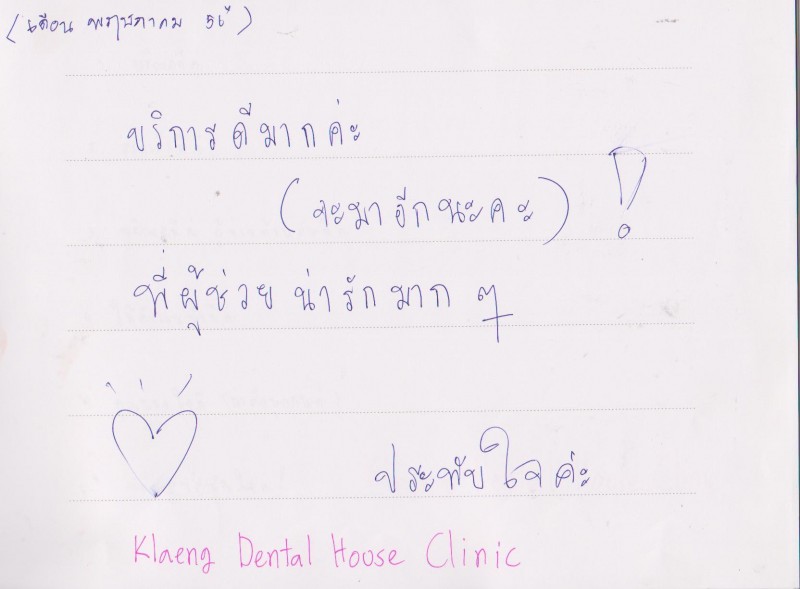 (เดือน พฤษภาคม 56)
บริการดีมากค่ะ
(จะมาอีกนะคะ) !
พี่ผู้ช่วย น่ารักมาก ๆ
ประทับใจค่ะ
Klaeng Dental House Clinic